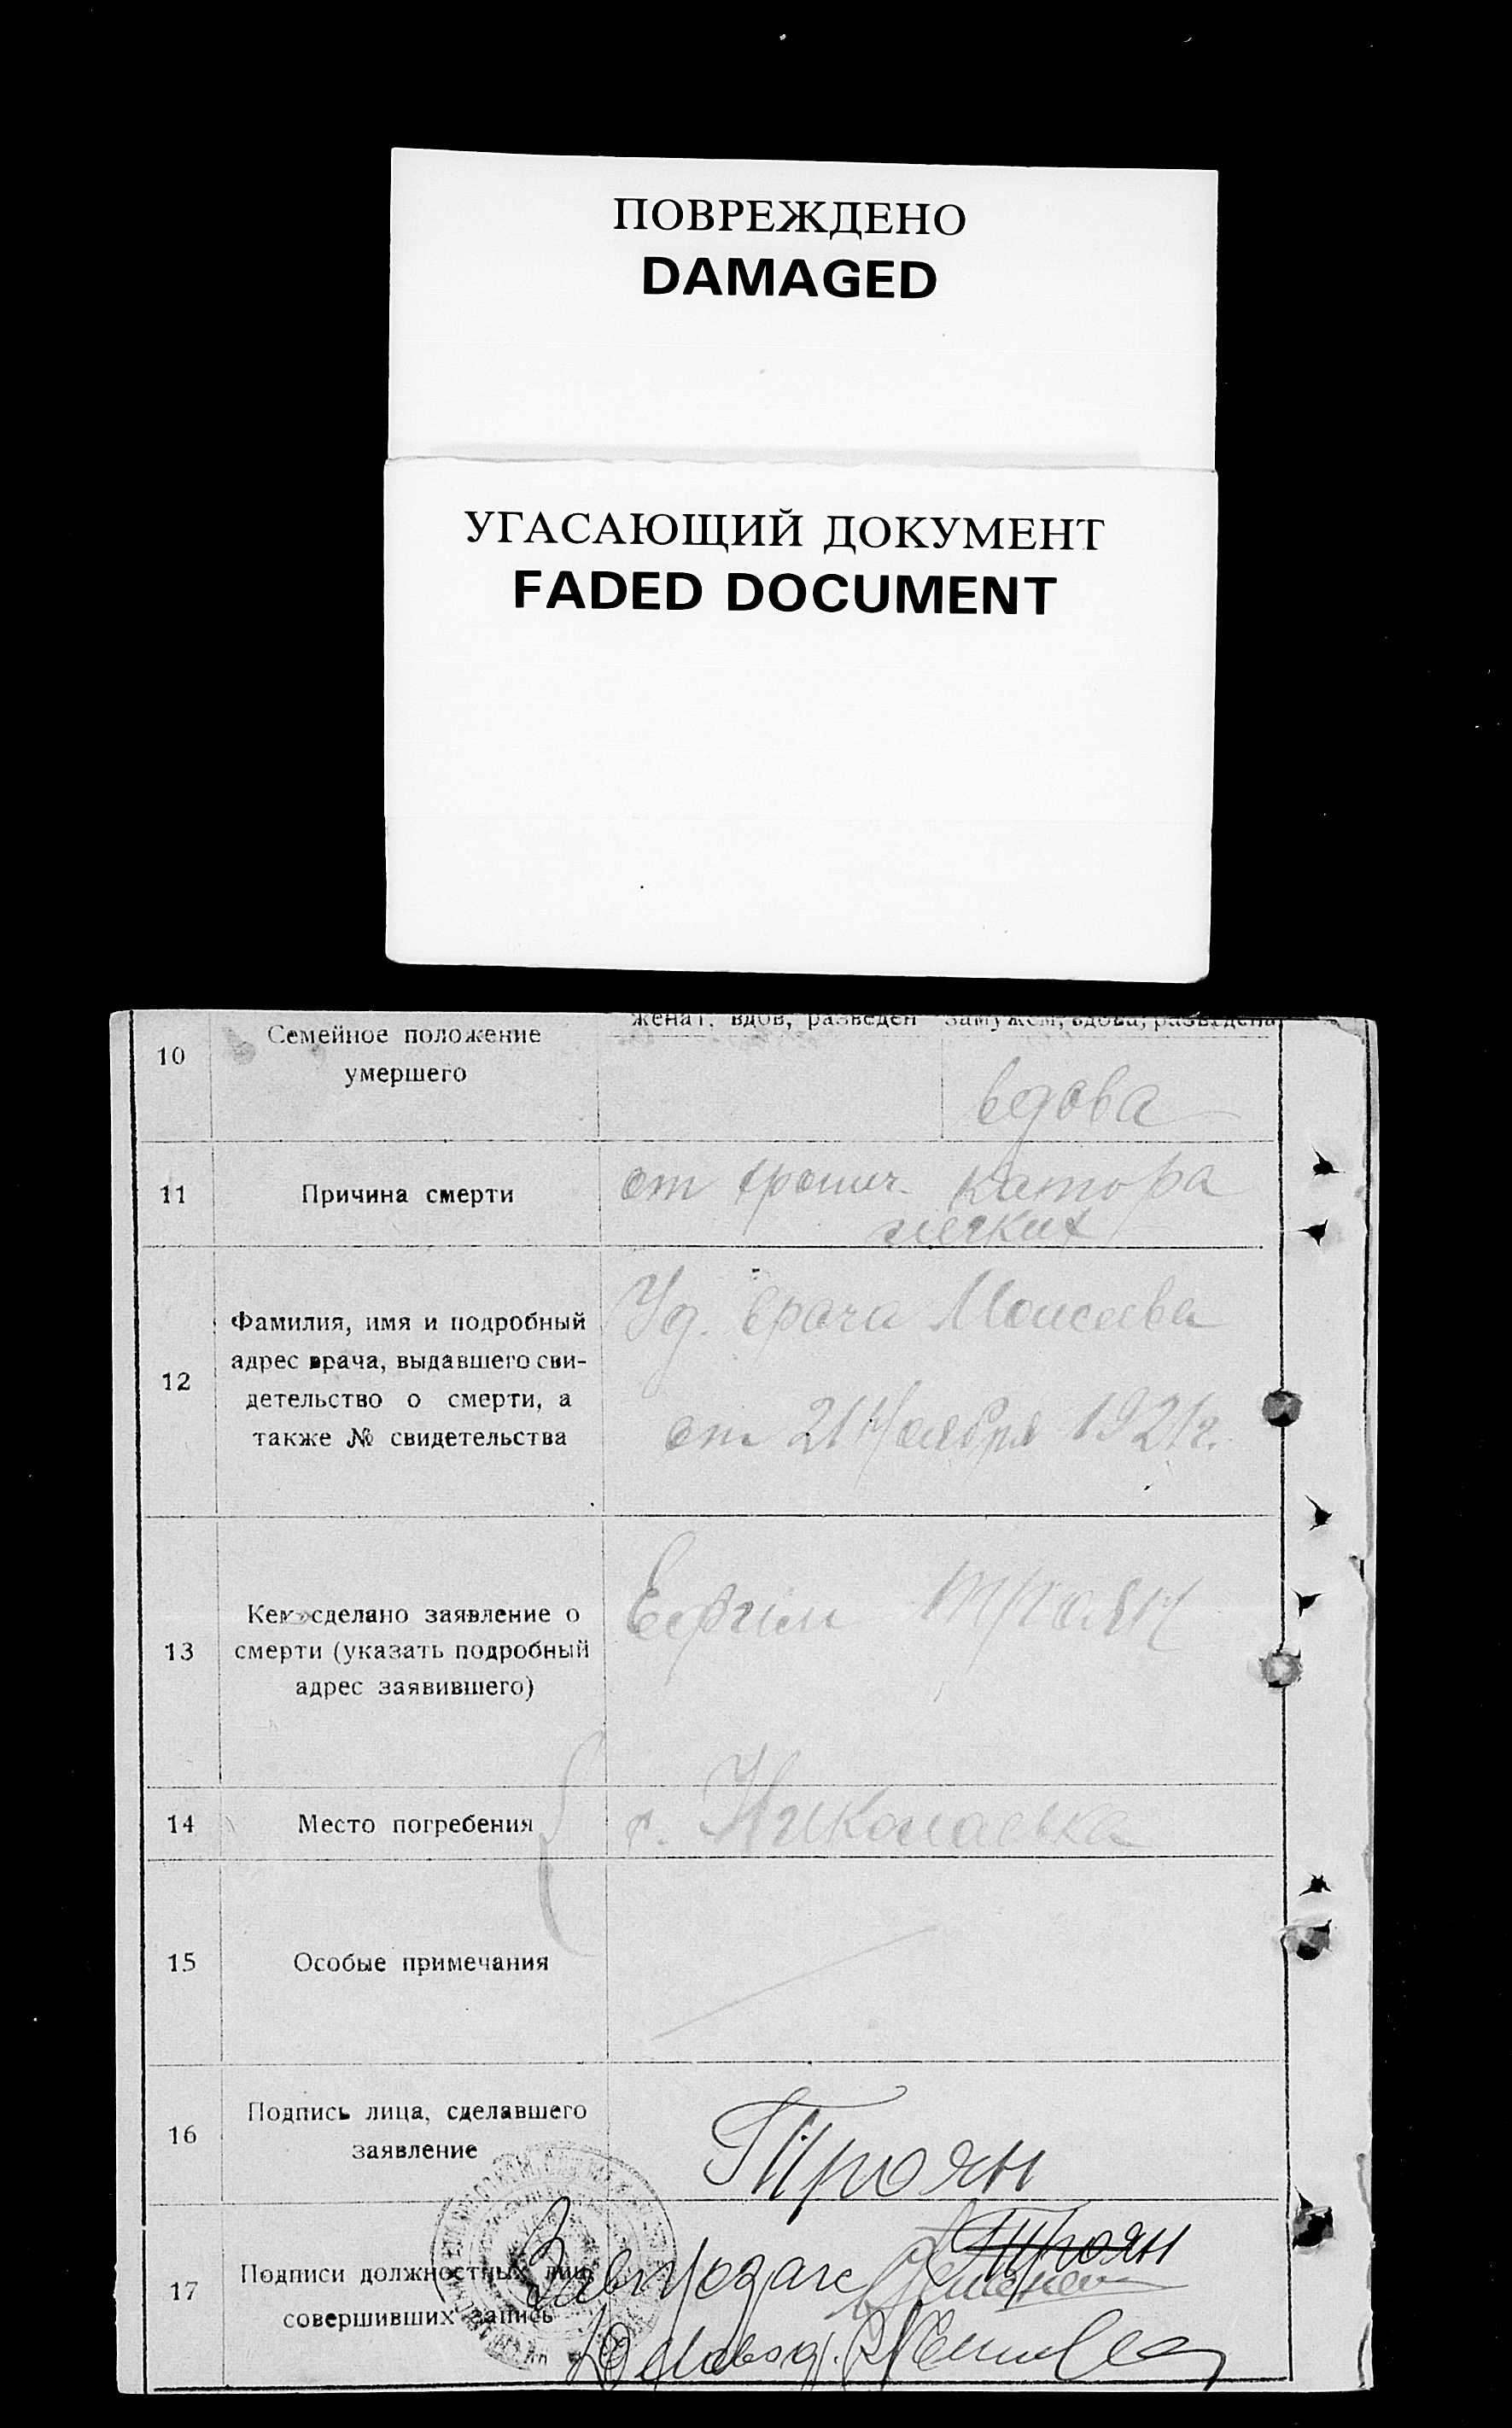 ПОВРЕЖДЕНО
DAMAGED
УГАСАЮЩИЙ ДОКУМЕНТ
FADED DOCUMENT
женат, вдов, разведен замужем, вдова, разведена
10 Семейное положение
умершего
вдова
11 Причина смерти
от хронич. катора
легких
12 Фамилия, имя и подробный
адрес врача, выдавшего сви-
детельство о смерти, а
также № свидетельства
Уд. врача Моисеева
от 21 Ноября 1921 г.
13 Кем сделано заявление о
смерти (указать подробный
адрес заявившего)
Ефим Троян
14 Место погребения
с. Николаевка
15 Особые примечания
16 Подпись лица, сделавшего
заявление
Троян
17 Подписи должностных лиц
совершивших запись
Троян